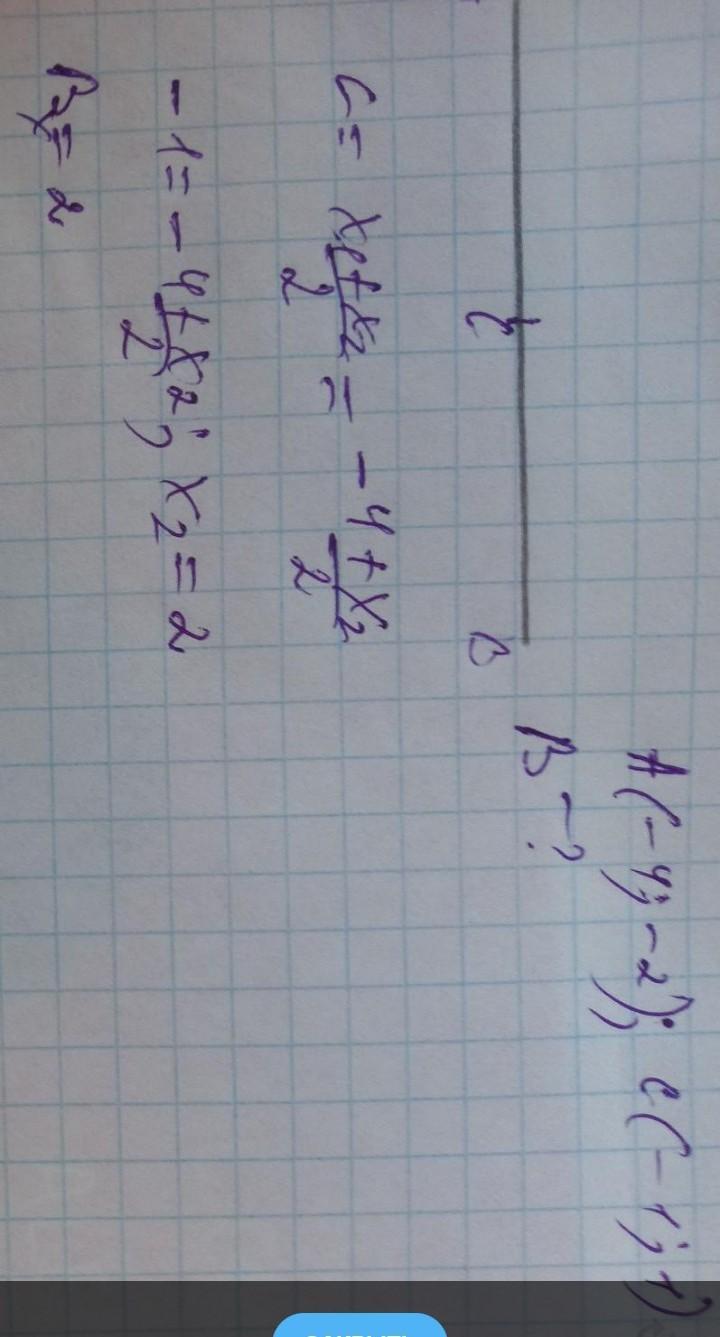 A(-4; -2); C(-1; 1)
B - ?
C B
C = x₁+x₂/2 = -4+x₂/2
-1 = -4+x₂/2; x₂ = 2
Bₓ = 2